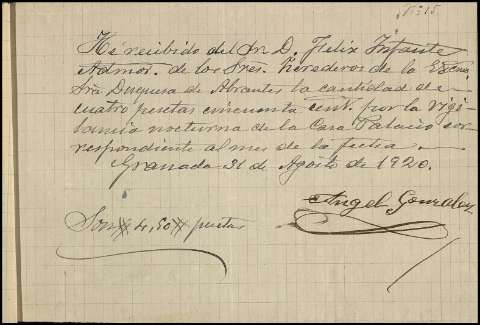 Nº 15
He recibido del Sr D. Felix Infante
Admor. de los Sres. herederos de la Excma
Sra Duquesa de Abrantes la cantidad de
cuatro pesetas cincuenta cent. por la vigi
lancia nocturna de la Casa Palacio cor
respondiente al mes de la fecha.
Granada 31 de Agosto de 1920.
Angel Gonzalez
Son # 4,50 # pesetas